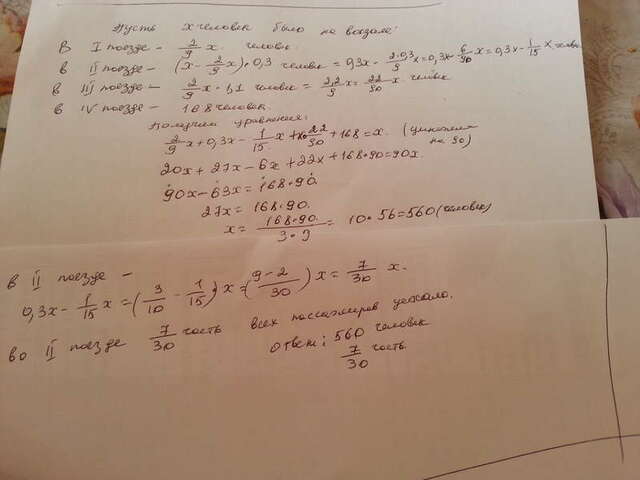 Пусть x человек было на вокзале:
В I поезде – 2/9 x. человек.
в II поезде – (x – 2/9 x)·0,3 человек = 0,3x – 2·0,3/9 x = 0,3x – 6/90 x = 0,3x – 1/15 x челов.
в III поезде – 2/9 x · 1,1 человек = 2,2/9 x = 22/90 x человек
в IV поезде – 168 человек.
Получим уравнение:
2/9 x + 0,3x – 1/15 x + 22/90 + 168 = x. (умножим на 90)
20x + 27x – 6x + 22x + 168·90 = 90x.
90x – 63x = 168·90.
27x = 168·90.
x = 168·90/3·9 = 10·56 = 560 (человек)
В II поезде –
0,3x – 1/15 x = (3/10 – 1/15)·x = (9–2/30) x = 7/30 x.
во II поезде 7/30 часть всех пассажиров уехало.
Ответ: 560 человек
7/30 часть.